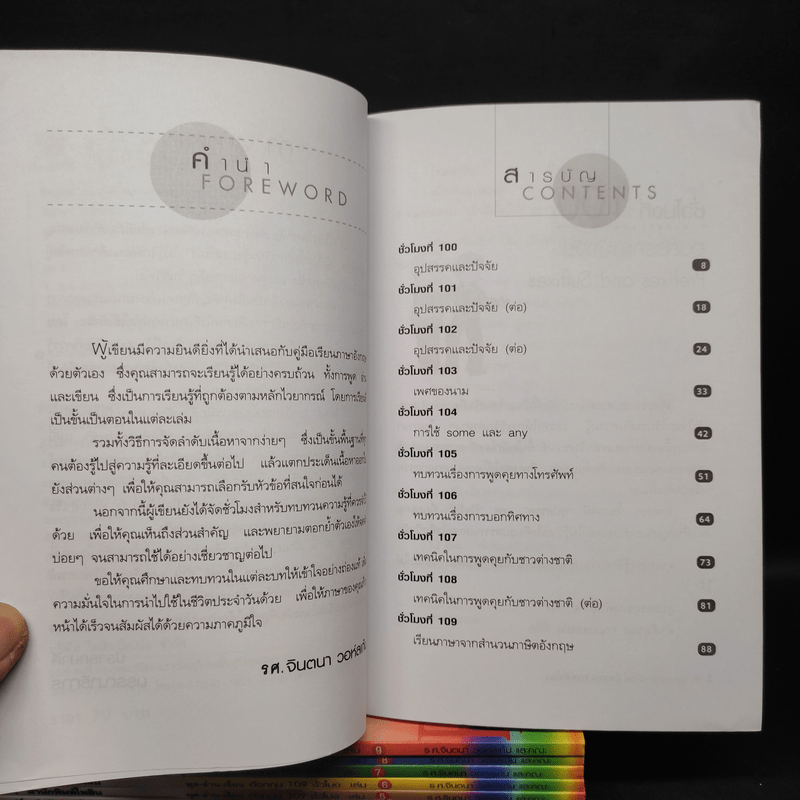 คำนำ
FOREWORD
ผู้เขียนมีความยินดียิ่งที่ได้นำเสนอกับคู่มือเรียนภาษาอังกฤษ
ด้วยตัวเอง ซึ่งคุณสามารถจะเรียนรู้ได้อย่างครบถ้วน ทั้งการพูด
และเขียน ซึ่งเป็นการเรียนรู้ที่ถูกต้องตามหลักไวยากรณ์ โดยการเรียน
เป็นขั้นเป็นตอนในแต่ละเล่ม
รวมทั้งวิธีการจัดลำดับเนื้อหาจากง่ายๆ ซึ่งเป็นขั้นพื้นฐานที่
คนต้องรู้ไปสู่ความรู้ที่ละเอียดขึ้นต่อไป แล้วแตกประเด็นเนื้อหาออก
ยังส่วนต่างๆ เพื่อให้คุณสามารถเลือกรับหัวข้อที่สนใจก่อนได้
นอกจากนี้ผู้เขียนยังได้จัดชั่วโมงสำหรับทบทวนความรู้
ด้วย เพื่อให้คุณเห็นถึงส่วนสำคัญ และพยายามตอกย้ำตัวเองให้
บ่อยๆ จนสามารถใช้ได้อย่างเชี่ยวชาญต่อไป
ขอให้คุณศึกษาและทบทวนในแต่ละบทให้เข้าใจอย่างถ่องแท้
ความมั่นใจในการนำไปใช้ในชีวิตประจำวันด้วย เพื่อให้ภาษาของคุณ
หน้าได้เร็วจนสัมผัสได้ด้วยความภาคภูมิใจ
รศ.จินตนา
สารบัญ
CONTENTS
ชั่วโมงที่ 100
อุปสรรคและปัจจัย 8
ชั่วโมงที่ 101
อุปสรรคและปัจจัย (ต่อ) 18
ชั่วโมงที่ 102
อุปสรรคและปัจจัย (ต่อ) 24
ชั่วโมงที่ 103
เพศของนาม 33
ชั่วโมงที่ 104
การใช้ some และ any 42
ชั่วโมงที่ 105
ทบทวนเรื่องการพูดคุยทางโทรศัพท์ 51
ชั่วโมงที่ 106
ทบทวนเรื่องการบอกทิศทาง 64
ชั่วโมงที่ 107
เทคนิคในการพูดคุยกับชาวต่างชาติ 73
ชั่วโมงที่ 108
เทคนิคในการพูดคุยกับชาวต่างชาติ (ต่อ) 81
ชั่วโมงที่ 109
เรียนภาษาจากสำนวนภาษิตอังกฤษ 88
9
8
7
เล่ม 6
เล่ม 5